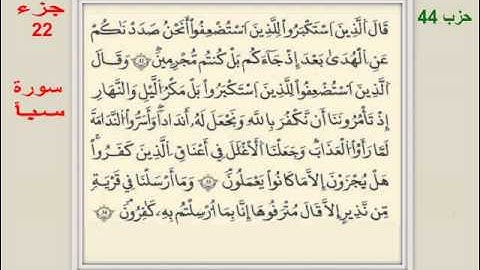 حزب 44
جزء
22
سورة
سبأ
قَالَ اَلذِينَ اَسْتَكْبَرُواْ لِلذِينَ اَسْتُضْعِفُواْ أَنَحْنُ صَدَدْنَٰكُمْ
عَنِ اِلْهُد۪ىٰ بَعْدَ إِذْ جَآءَكُم بَلْ كُنتُم مُّجْرِمِينَۖ وَقَالَ
اَلذِينَ اَسْتُضْعِفُواْ لِلذِينَ اَسْتَكْبَرُواْ بَلْ مَكْرُ اُليْلِ وَالنَّهَارِ
إِذْ تَامُرُونَنَآ أَن نَّكْفُرَ بِاللَّهِ وَنَجْعَلَ لَهُۥٓ أَندَاداً وَأَسَرُّواْ اُلنَّدَامَةَ
لَمَّا رَأَوُاْ اُلْعَذَابَ وَجَعَلْنَا اَلَاغْلَٰلَ فِےٓ أَعْنَاقِ اِلذِينَ كَفَرُواْ
هَلْ يُجْزَوْنَ إِلَّا مَا كَانُواْ يَعْمَلُونَ وَمَآ أَرْسَلْنَا فِے قَرْيَةٍ
مِّن نَّذِيرٍ اِلَّا قَالَ مُتْرَفُوهَآ إِنَّا بِمَآ أُرْسِلْتُم بِهِۦ كَٰفِرُونَ